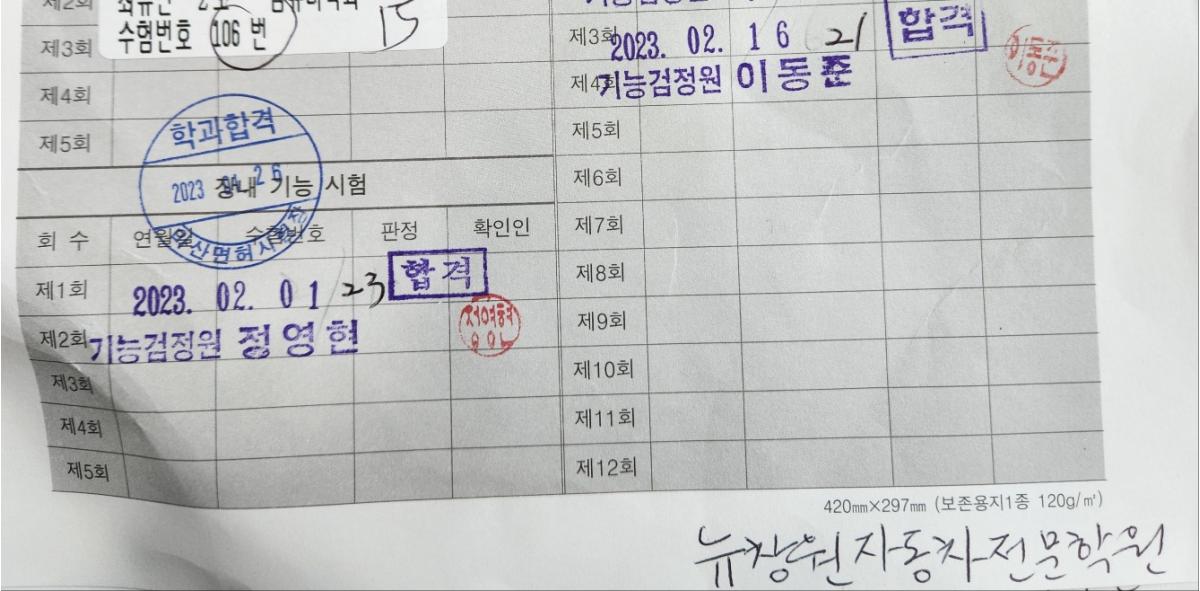 제2회
수험번호 106 번
15
제3회
제4회
제5회
학과합격
2023 01 26
장내 기능 시험
회 수 연월일 수험번호 판정 확인인
제1회 2023. 02. 01 23 합격
제2회 기능검정원 정영현
제3회
제4회
제5회
제3회 2023. 02. 16 21 합격
제4회 기능검정원 이동준
제5회
제6회
제7회
제8회
제9회
제10회
제11회
제12회
420㎜×297㎜ (보존용지1종 120g/㎡)
뉴창원자동차전문학원